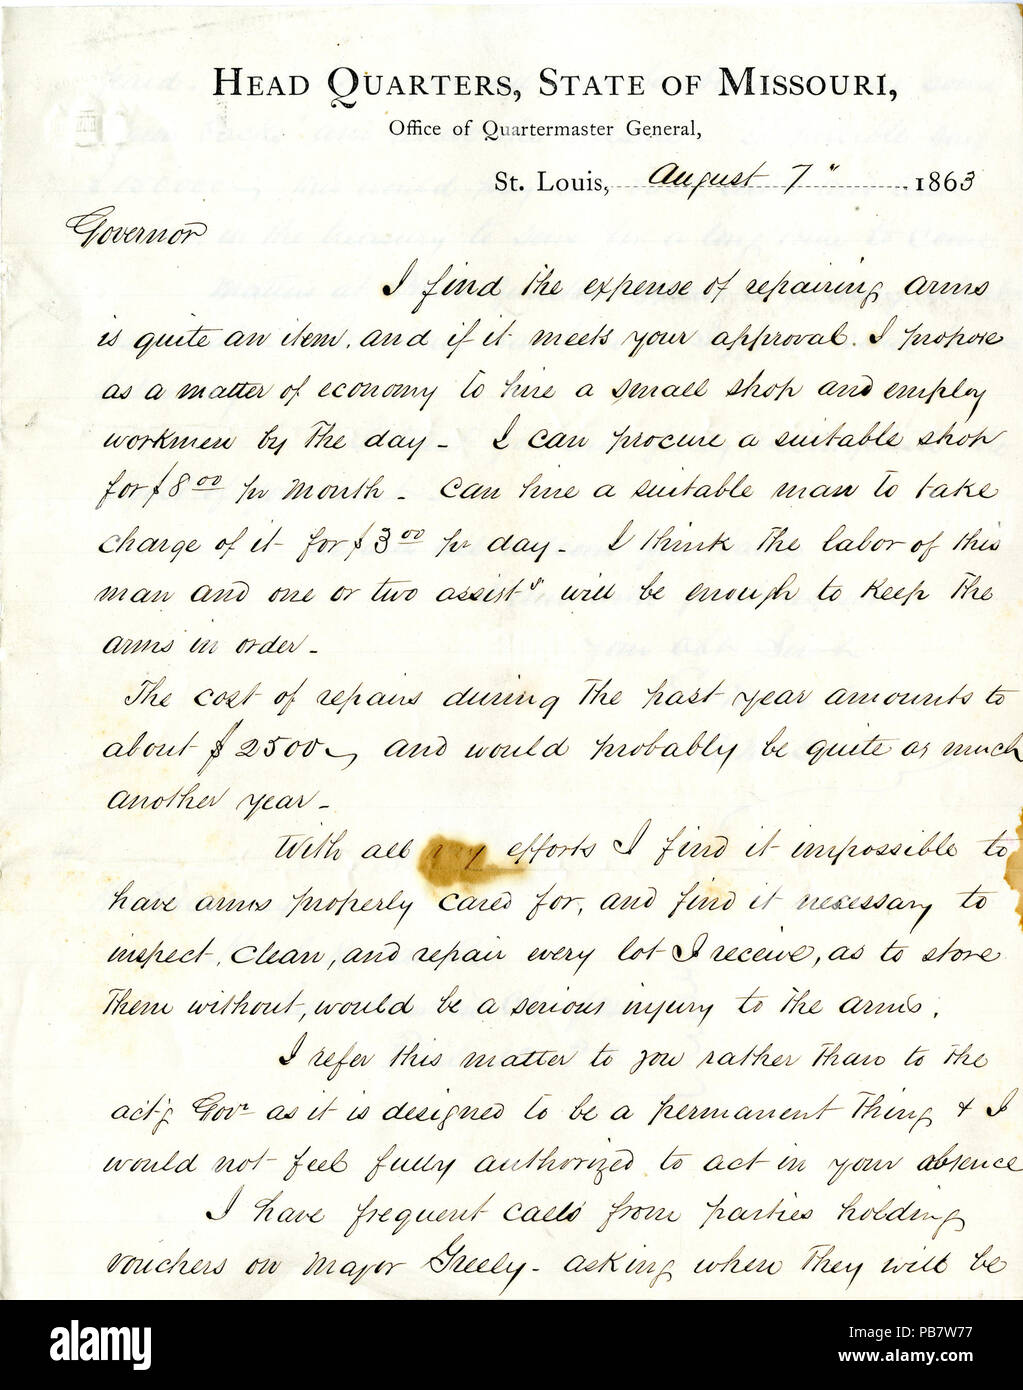 HEAD QUARTERS, STATE OF MISSOURI,
Office of Quartermaster General,
St. Louis, August 7" 1863
Governor
I find the expense of repairing arms
is quite an item, and if it meets your approval. I propose
as a matter of economy to hire a small shop and employ
workmen by the day - I can procure a suitable shop
for $8 00 pr month - can hire a suitable man to take
charge of it for $3 00 pr day - I think the labor of this
man and one or two assists will be enough to keep the
arms in order -
The cost of repairs during the past year amounts to
about $2500, and would probably be quite as much
another year -
With all my efforts I find it impossible to
have arms properly cared for, and find it necessary to
inspect, clean, and repair every lot I receive, as to store
them without, would be a serious injury to the arms.
I refer this matter to you rather than to the
act'g Govr as it is designed to be a permanent thing & I
would not feel fully authorized to act in your absence
I have frequent calls from parties holding
vouchers on Major Greely - asking when they will be
alamy
a
alamy
Image ID: PB7W77
www.alamy.com